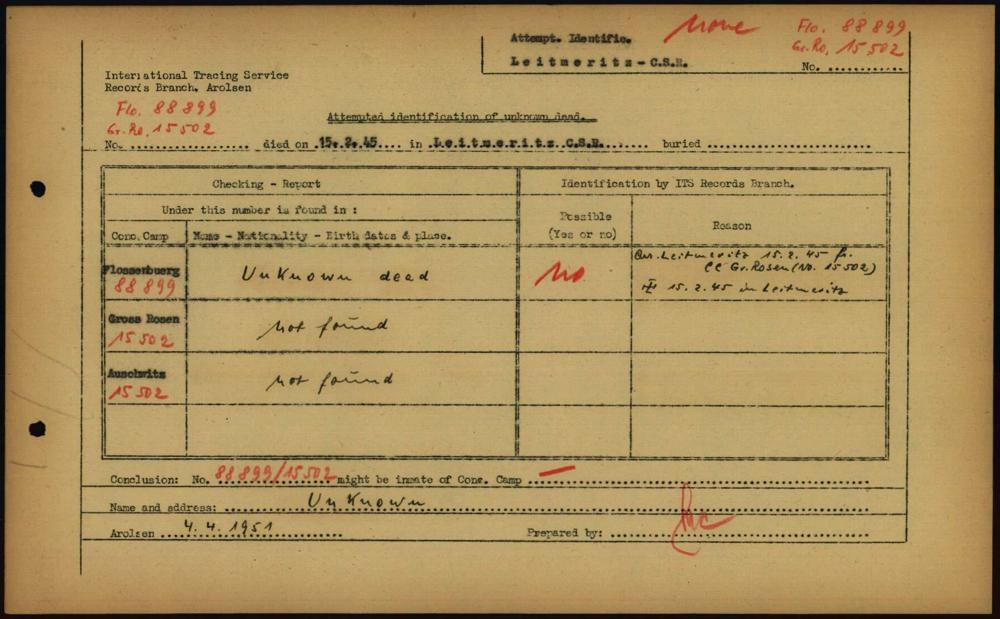 Attempt. Identific. None Flo. 88 899
Gr.Ro. 15 502
Leitmeritz - C.S.R. No. ............
International Tracing Service
Records Branch, Arolsen
Flo. 88 899
Gr.Ro. 15 502
Attempted identification of unknown dead.
No. .................. died on .15.2.45.... in .Leitmeritz C.S.R........ buried .........................
Checking - Report Identification by ITS Records Branch.
Under this number is found in :
Conc. Camp Name - Nationality - Birth dates & place. Possible (Yes or no) Reason
Flossenbuerg 88 899 Unknown dead No Arr. Leitmeritz 15.2.45 fr.
CC Gr. Rosen (No. 15 502)
15.2.45 in Leitmeritz
Gross Rosen 15 502 not found
Auschwitz 15 502 not found
Conclusion: No. 88 899/15502 might be inmate of Conc. Camp — ..................
Name and address: Unknown
Arolsen 4.4.1951 Prepared by: ..................